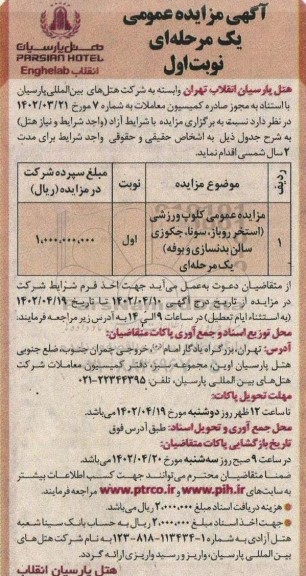 آگهی مزایده عمومی
یک مرحله‌ای
نوبت اول
هتل پارسیان
PARSIAN HOTEL
Enghelab انقلاب
هتل پارسیان انقلاب تهران وابسته به شرکت هتل‌های بین‌المللی پارسیان
با استناد به مجوز صادره کمیسیون معاملات به شماره ۷ مورخ ۱۴۰۲/۰۳/۲۱
در نظر دارد نسبت به برگزاری مزایده با شرایط آزاد (واجد شرایط و نیاز هتل)
به شرح جدول ذیل به اشخاص حقیقی و حقوقی واجد شرایط برای مدت
۲ سال شمسی اقدام نماید.
ردیف موضوع مزایده نوبت مبلغ سپرده شرکت در مزایده (ریال)
۱ مزایده عمومی کلوپ ورزشی اول ۱,۰۰۰,۰۰۰,۰۰۰
(استخر روباز، سونا، جکوزی
سالن بدنسازی و بوفه)
یک مرحله‌ای
از متقاضیان دعوت به‌عمل می‌آید جهت اخذ فرم شرایط شرکت
در مزایده از تاریخ درج آگهی ۱۴۰۲/۰۴/۱۰ تا تاریخ ۱۴۰۲/۰۴/۱۹
(به‌استثناء ایام تعطیل) در ساعات ۹ الی ۱۴ به آدرس زیر مراجعه فرمایند:
محل توزیع اسناد و جمع‌آوری پاکات متقاضیان:
آدرس: تهران، بزرگراه یادگار امام "ره"، خروجی چمران جنوب، ضلع جنوبی
هتل پارسیان اوین، مجموعه سئن، دفتر کمیسیون معاملات شرکت
هتل‌های بین المللی پارسیان، تلفن: ۲۲۳۴۴۳۹۵-۰۲۱
مهلت تحویل پاکات:
تا ساعت ۱۲ ظهر روز دوشنبه مورخ ۱۴۰۲/۰۴/۱۹ می‌باشد.
محل جمع آوری و تحویل اسناد: طبق آدرس فوق
تاریخ بازگشایی پاکات متقاضیان:
در ساعت ۹ صبح روز سه‌شنبه مورخ ۱۴۰۲/۰۴/۲۰ می‌باشد.
ضمنا متقاضیان محترم می‌توانند جهت کسب اطلاعات بیشتر
به سایت‌های www.pih.ir و www.ptrco.ir مراجعه فرمایند.
● هزینه دریافت اسناد مبلغ ۲,۰۰۰,۰۰۰ ریال می‌باشد.
● جهت اخذ اسناد مبلغ ۲,۰۰۰,۰۰۰ ریال به حساب بانک سینا شعبه
هتل آزادی به شماره ۱-۱۱۳۴۳۴-۸۱۸-۱۲۳ به نام شرکت هتل‌های
بین المللی پارسیان، واریز و رسید واریزی ارائه گردد.
هتل پارسیان انقلاب